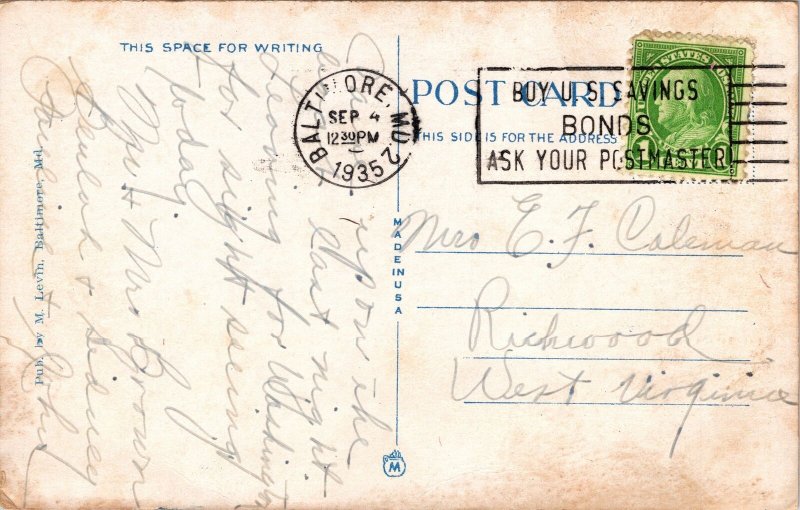 THIS SPACE FOR WRITING
POST CARD
THIS SIDE IS FOR THE ADDRESS
BALTIMORE, MD 2
SEP 4
12 30 PM
1935
BUY U. S. SAVINGS
BONDS
ASK YOUR POSTMASTER
UNITED STATES POSTAGE
1
upon the
last night.
Leaving for Washington
for sight seeing
today.
Mr & Mrs Brown
Beulah & Sidney
& John
Mrs E. F. Coleman
Richwood
West Virginia
MADE IN USA
Pub. by M. Levin, Baltimore, Md.
M